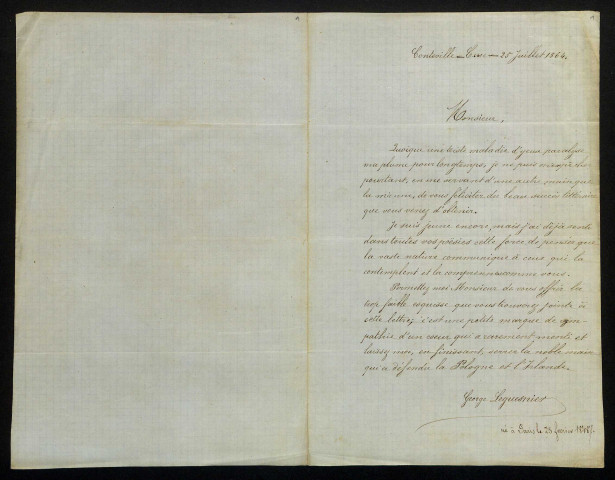 Conteville - Eure - 25 Juillet 1864.
Monsieur,
Quoiqu'une triste maladie d'yeux paralyse
ma plume pour longtemps, je ne puis m'empêcher
pourtant, en me servant d'une autre main que
la mienne, de vous féliciter du beau succès littéraire
que vous venez d'obtenir.
Je suis jeune encore, mais j'ai déjà senti
dans toutes vos poësies cette force de pensée que
la vaste nature communique à ceux qui la
contemplent et la comprennent comme vous.
Permettez moi Monsieur de vous offrir la
trop faible esquisse que vous trouverez jointe à
cette lettre; c'est une petite marque de sym-
pathie d'un cœur qui a rarement menti et
laissez moi, en finissant, serrer la noble main
qui a défendu la Pologne et l'Irlande.
George Lequesnier
né à Paris le 25 février